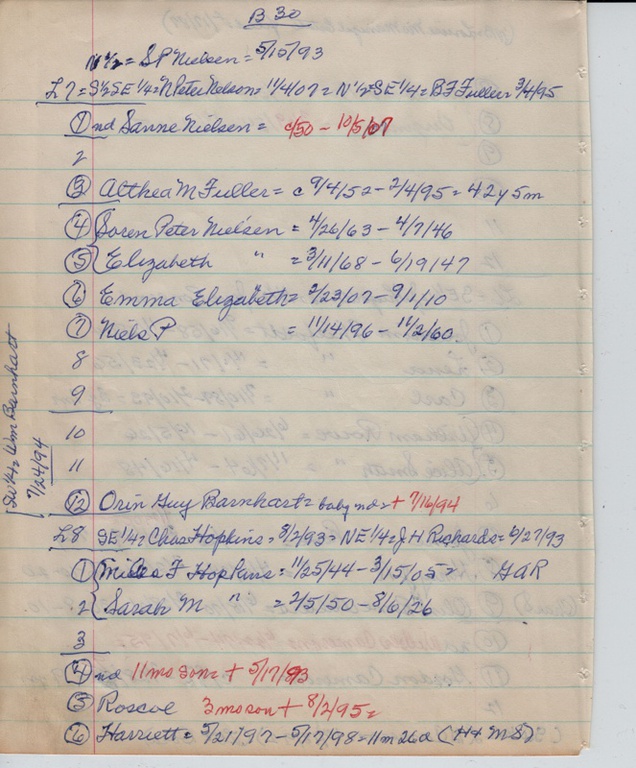 B 30
N 1/2 = S P Nielsen = 5/15/93
L7 = S 1/2 SE 1/4 = N Peter Nelson = 11/4/07 = N 1/2 = SE 1/4 = B F Fuller = 3/4/95
① nd Sanne Nielsen = c/50 - 10/5/07
2
③ Althea M Fuller = c 9/4/52 - 2/4/95 = 42y 5m
④ Soren Peter Nielsen = 4/26/63 - 4/7/46
⑤ Elizabeth " = 3/11/68 - 6/19/47
⑥ Emma Elizabeth = 2/23/07 - 9/1/10
⑦ Niels P = 11/14/96 - 11/2/60
8
9
10
11
⑫ Orin Guy Barnhart = baby nd = + 7/16/94
SW 1/4 = Wm Barnhart
7/24/94
L8 SE 1/4 = Chas Hopkins = 8/2/93 = NE 1/4 = J H Richards = 6/27/93
① Miles F Hopkins = 11/25/44 - 3/15/05 = GAR
2 Sarah M " = 2/5/50 - 8/6/26
3
④ nd 11 mo son = + 5/17/93
⑤ Roscoe 3 mo son + 8/2/95 =
⑥ Harriett = 5/21/97 - 5/17/98 = 11m 26d (H + M S)